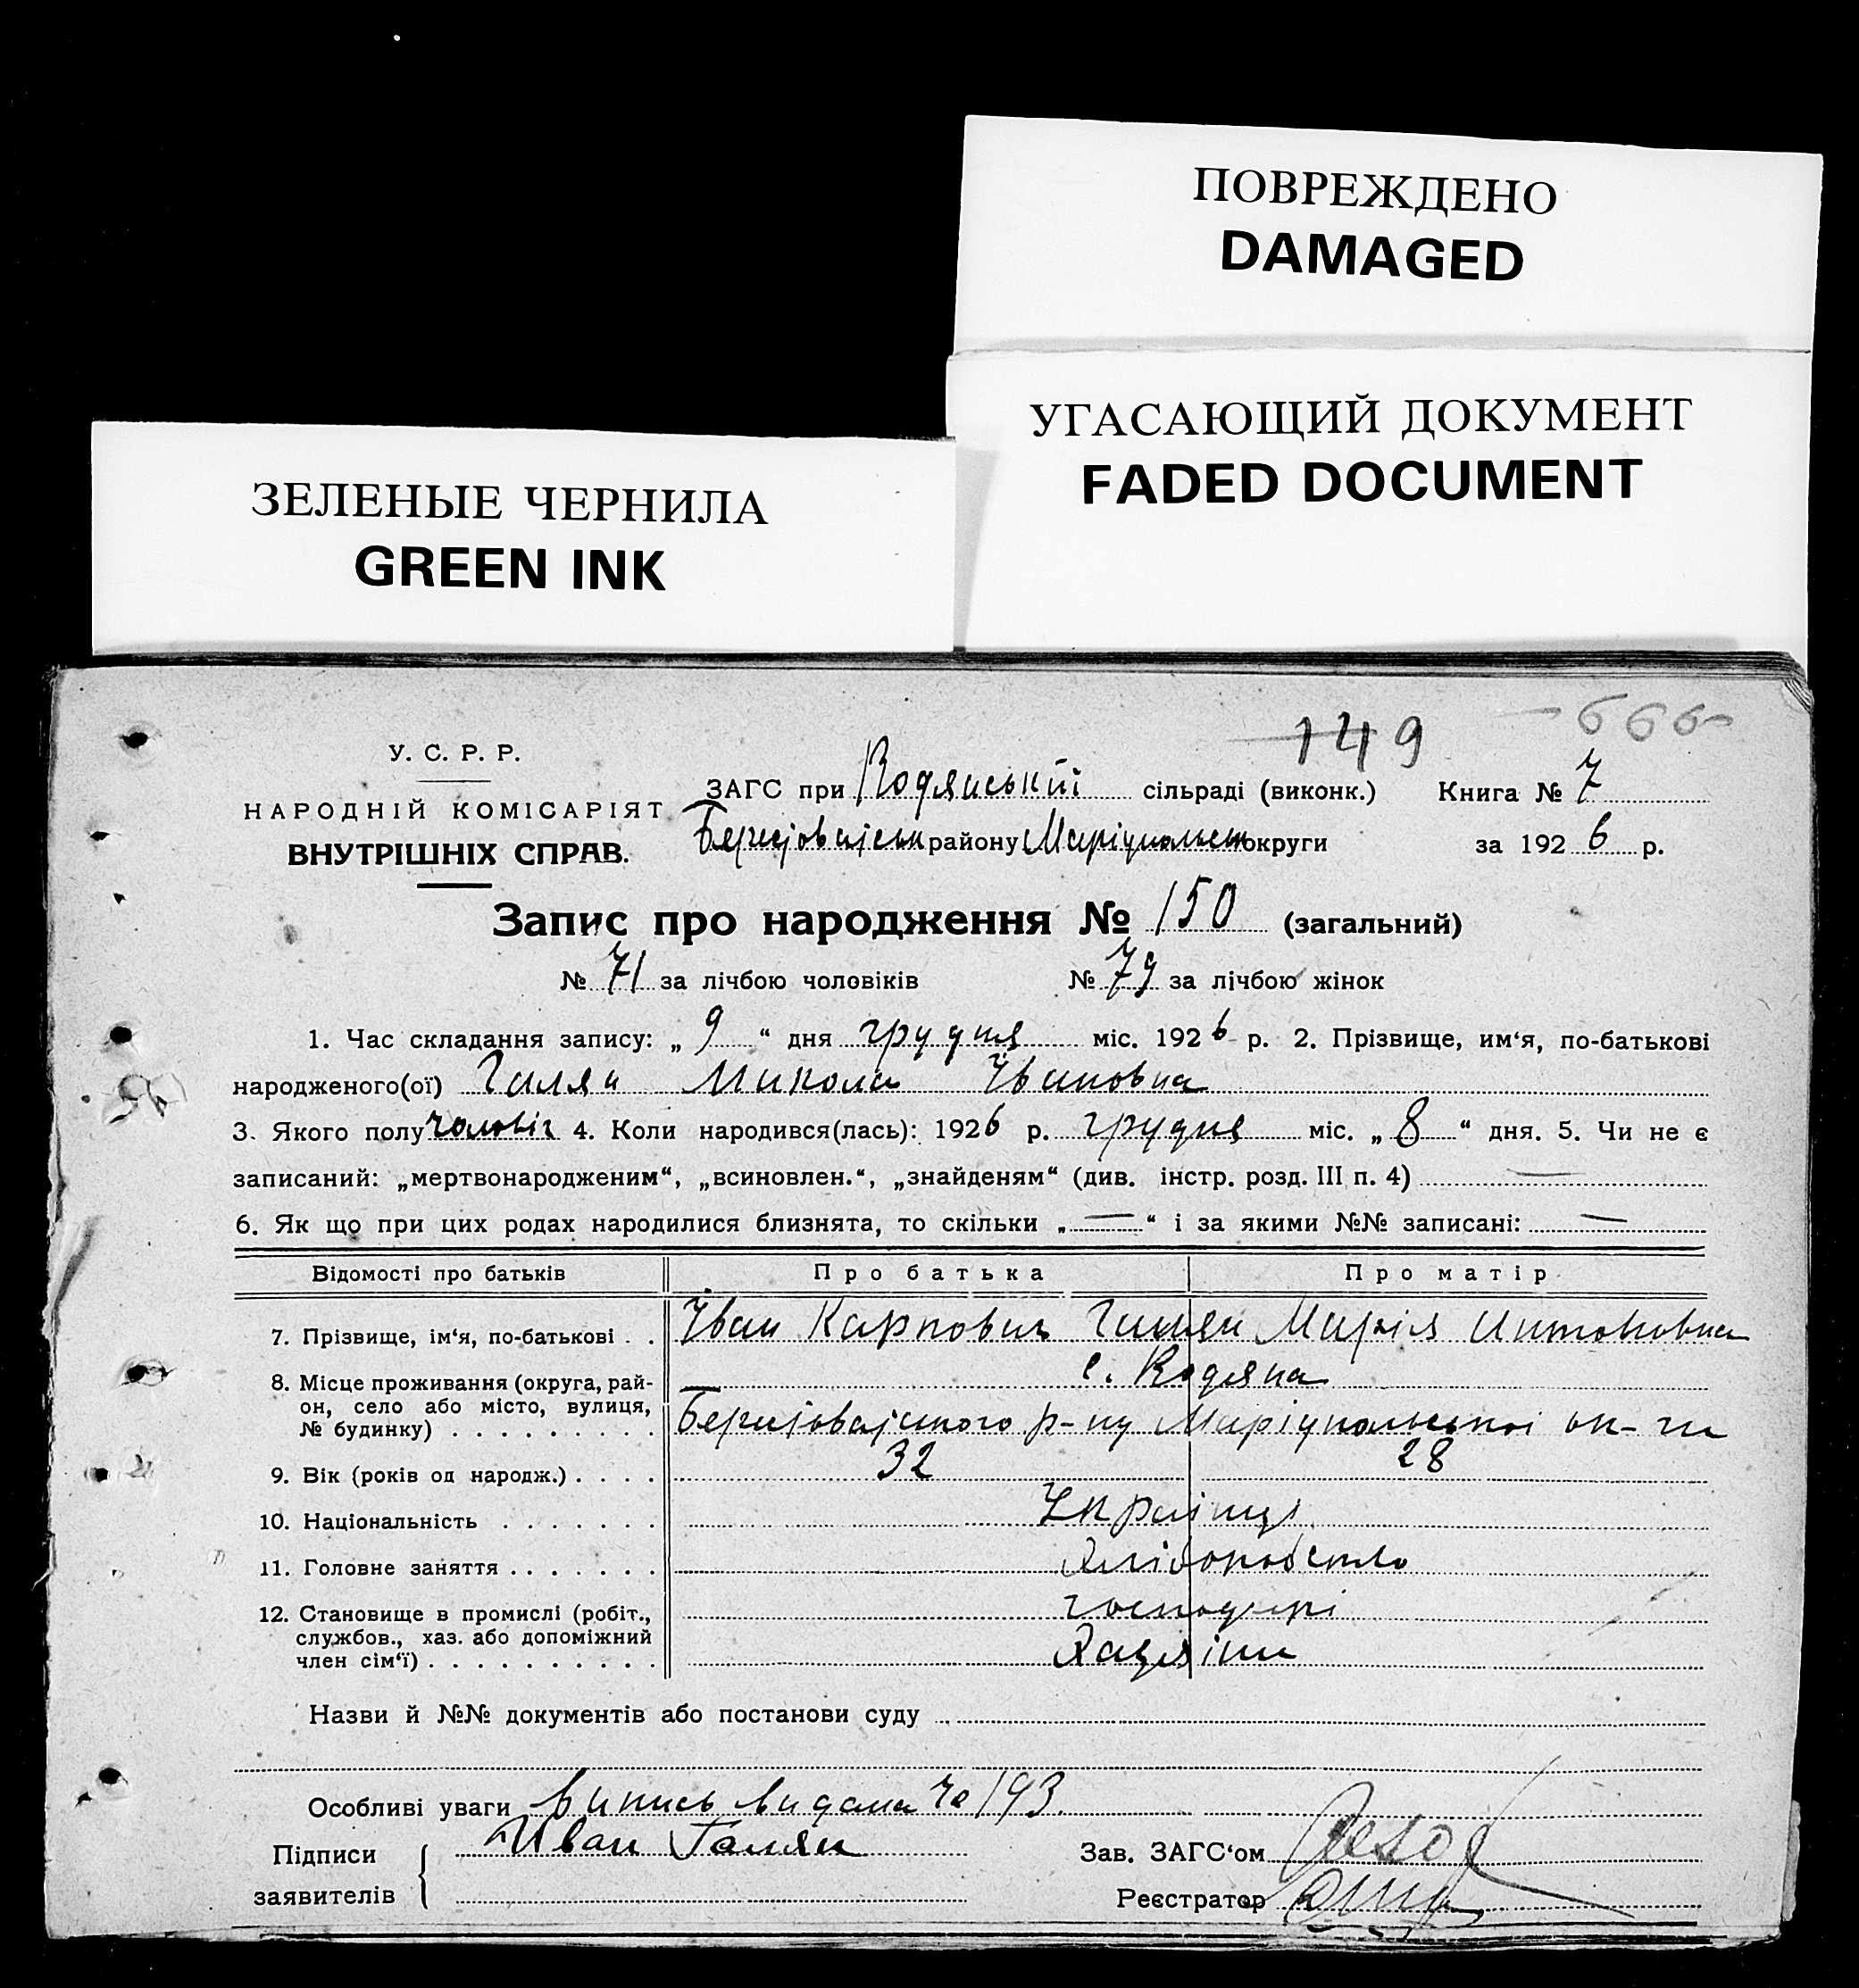 ПОВРЕЖДЕНО
DAMAGED
УГАСАЮЩИЙ ДОКУМЕНТ
FADED DOCUMENT
ЗЕЛЕНЫЕ ЧЕРНИЛА
GREEN INK
149 666
У. С. Р. Р.
НАРОДНІЙ КОМІСАРІЯТ
ВНУТРІШНІХ СПРАВ.
ЗАГС при Водянській сільраді (виконк.) Книга № 7
району Маріупольськ округи за 1926 р.
Запис про народження № 150 (загальний)
№ 71 за лічбою чоловіків № 79 за лічбою жінок
1. Час складання запису: „ 9 “ дня грудня міс. 1926 р. 2. Прізвище, им‘я, по-батькові
народженого(ої) Галян Микола Івановна
3. Якого полу чоловіч 4. Коли народився(лась): 1926 р. грудня міс. „ 8 “ дня. 5. Чи не є
записаний: „мертвонародженим“, „всиновлен.“, „знайденям“ (див. інстр. розд. III п. 4) —
6. Як що при цих родах народилися близнята, то скільки „ — “ і за якими №№ записані: —
Відомості про батьків Про батька Про матір
7. Прізвище, ім‘я, по-батькові . . Іван Карпович Галян Марія Антоновна
8. Місце проживання (округа, рай- с. Водяна
он, село або місто, вулиця,
№ будинку) . . . . . . . . . р-ну Маріупольської ок-ги
9. Вік (років од народж.) . . . . 32 28
10. Національність . . . . . . . Українці
11. Головне заняття . . . . . . . Хліборобство
12. Становище в промислі (робіт., господарі
службов., хаз. або допоміжний
член сім‘ї) . . . . . . . . . . Хазяїни
Назви й №№ документів або постанови суду
Особливі уваги Випись видана № 193.
Підписи Иван Галян Зав. ЗАГС‘ом
заявителів Реєстратор